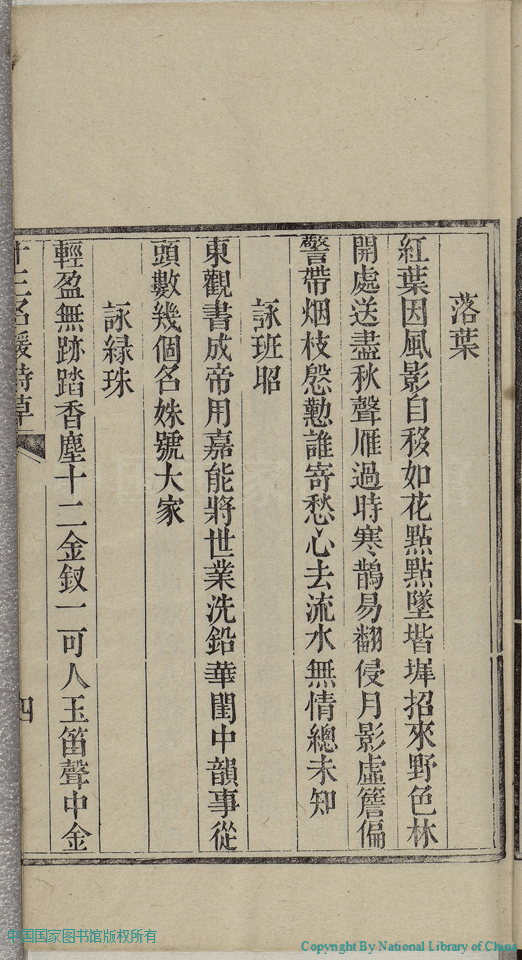 落葉
紅葉因風影自移如花點點墜堦墀招來野色林
開處送盡秋聲雁過時寒鵲易翻侵月影虛簷偏
警帶烟枝慇懃誰寄愁心去流水無情總未知
詠班昭
東觀書成帝用嘉能將世業洗鉛華閨中韻事從
頭數幾個名姝號大家
詠緑珠
輕盈無跡踏香塵十二金釵一可人玉笛聲中金
十三名媛詩草
四
中国国家图书馆版权所有
Copyright By National Library of China